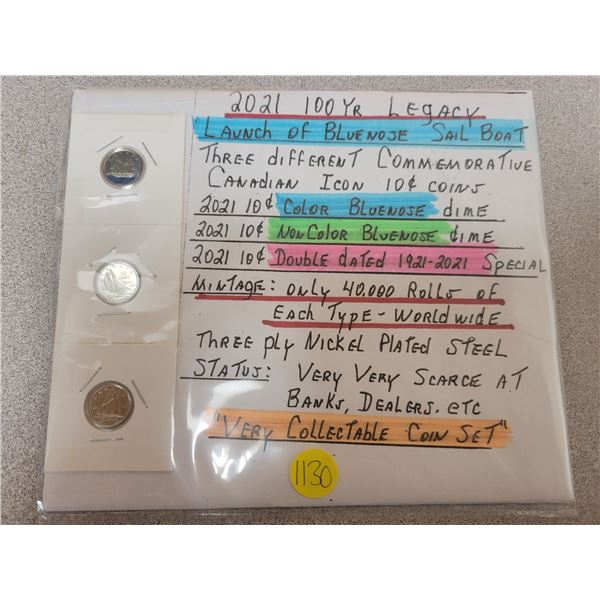 2021 100 Yr LEGACY
LAUNCH OF BLUENOSE SAIL BOAT
THREE different COMMEMORATIVE
CANADIAN ICON 10¢ COINS
2021 10¢ COLOR BLUENOSE dIME
2021 10¢ NONCOLOR BLUENOSE dIME
2021 10¢ DOUBLE dATED 1921-2021 SPECIAL
MINTAGE: ONLY 40.000 ROLLS OF
EACH TYPE - WORLDWIDE
THREE ply NICKEL PLATED STEEL
STATUS: VERY VERY SCARCE AT
BANKS, DEALERS. etc
"VERY COLLECTABLE COIN SET"
1130